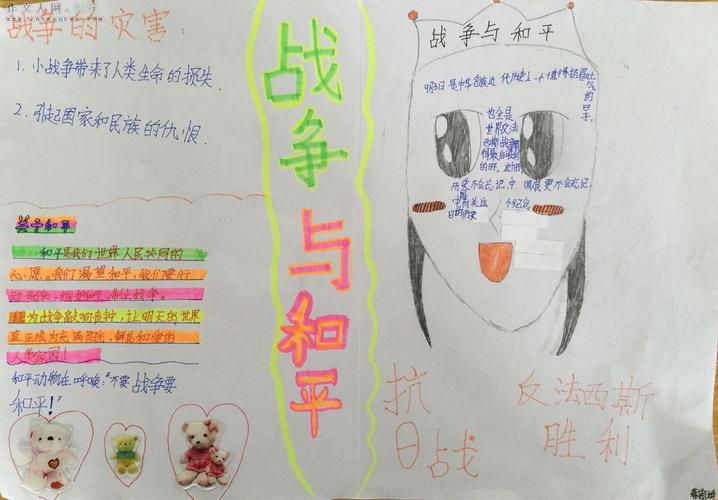 作文人网
www.zuowenren.com
战争的灾害:
1. 小战争带来了人类生命的损失.
2. 引起国家和民族的仇恨.
关于和平
和平是我们世界人民共同的
心愿。我们渴望和平,我们要行
动起来,
制止战争。
为战争敲响丧钟,让明天的世界
真正成为充满阳光、鲜花和爱的
人类家园!
和平动物在呼唤:“不要战争要
和平!”
战争与和平
战争与和平
9月3日是中华民族近代历史上一个值得扬眉吐气的日子,
也全是
世界反法
西斯战争
历史不会忘记,中国家更不会忘记,
个纪念
日的历史
抗日战
反法西斯
胜利